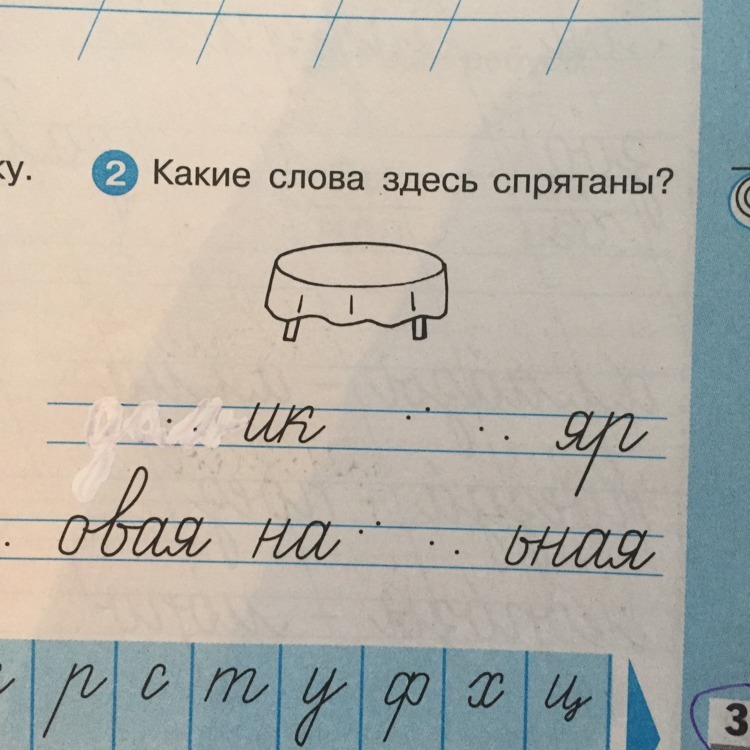 ку. 2 Какие слова здесь спрятаны?
ик яр
овая на ьная
р с т у ф х ц
3